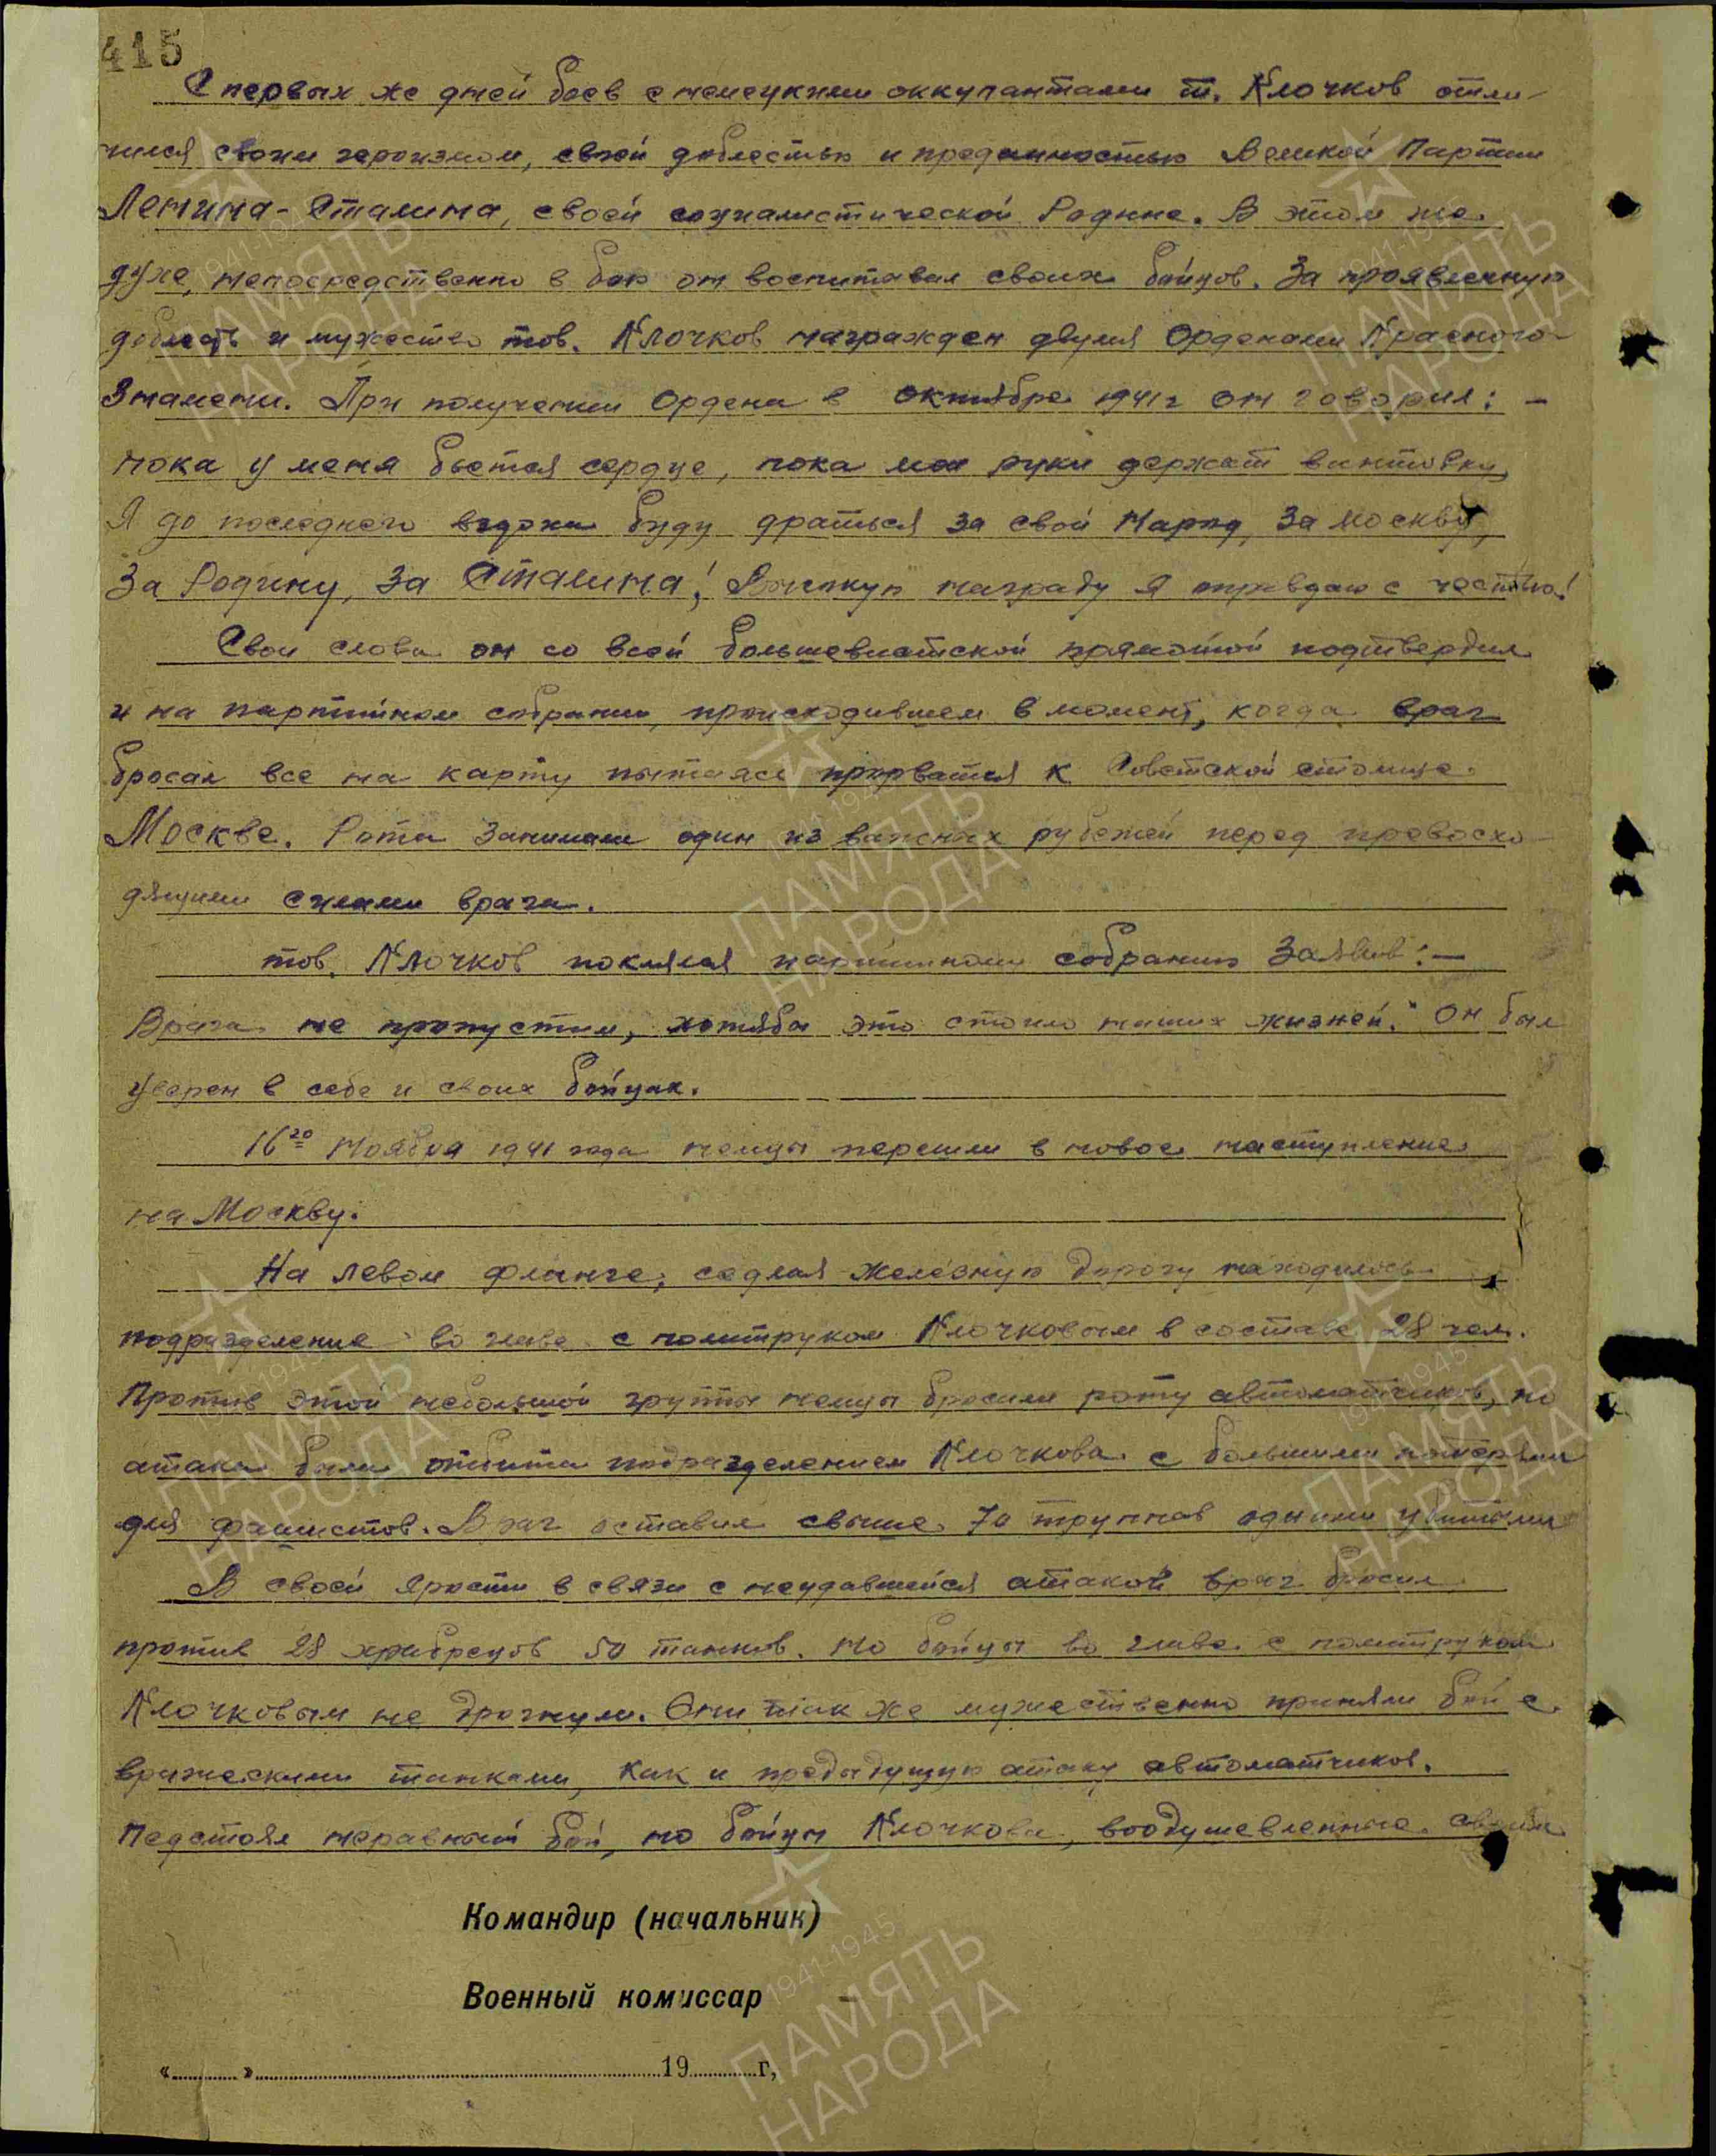 415
С первых же дней боев с немецкими оккупантами т. Клочков отли-
чился своим героизмом, своей доблестью и преданностью Великой Партии
Ленина-Сталина, своей социалистической Родине. В этом же
духе, непосредственно в бою он воспитавал своих бойцов. За проявленную
доблесть и мужество тов. Клочков награжден двумя Орденами Красного
Знамени. При получении Ордена в октябре 1941г он говорил: -
пока у меня бьется сердце, пока мои руки держат винтовку,
Я до последнего вздоха буду драться за свой Народ, за Москву,
За Родину, за Сталина! Высокую награду я оправдаю с честью!
Свои слова он со всей большевистской прямотой подтвердил
и на партийном собрании, происходившем в момент, когда враг
бросал все на карту пытаясь прорваться к Советской столице
Москве. Рота занимала один из важных рубежей перед превосхо-
дящими силами врага.
тов. Клочков поклялся партийному собранию заявив: -
Врага не пропустим, хотябы это стоило наших жизней." Он был
уверен в себе и своих бойцах.
16го ноября 1941 года немцы перешли в новое наступление
на Москву.
На левом фланге, седлая железную дорогу находилось
подразделение во главе с политруком Клочковым в составе 28 чел.
Против этой небольшой группы немцы бросили роту автоматчиков, но
атака была отбита подразделением Клочкова с большими потерями
для фашистов. Враг оставил свыше 70 трупов одними убитыми
В своей ярости в связи с неудавшейся атакой враг бросил
против 28 храбрецов 50 танков. Но бойцы во главе с политруком
Клочковым не дрогнули. Они так же мужественно приняли бой с
вражескими танками, как и предыдущую атаку автоматчиков.
Педстоял неравный бой, но бойцы Клочкова, воодушевленные своим
Командир (начальник)
Военный комиссар
«......» ...... 19......г,
1941-1945
ПАМЯТЬ
НАРОДА